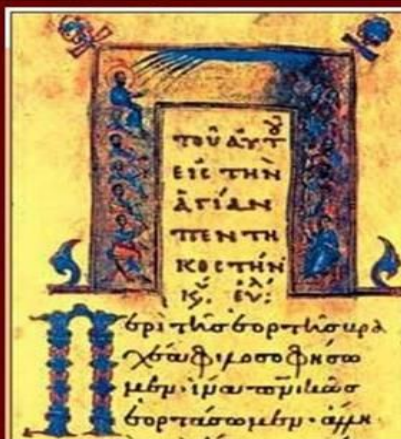 ΤΟΥ ΑΥΤȢ
ΕΙϹ ΤΗΝ
ΑΓΙΑΝ
ΠΕΝΤΗ
ΚΟϹΤΗΝ
Κε ΕΥλ
Περὶ τῆς ἑορτῆς βρα
χέα φιλοσοφήσω
μεν· ἵνα πνικῶς
ἑορτάσωμεν·